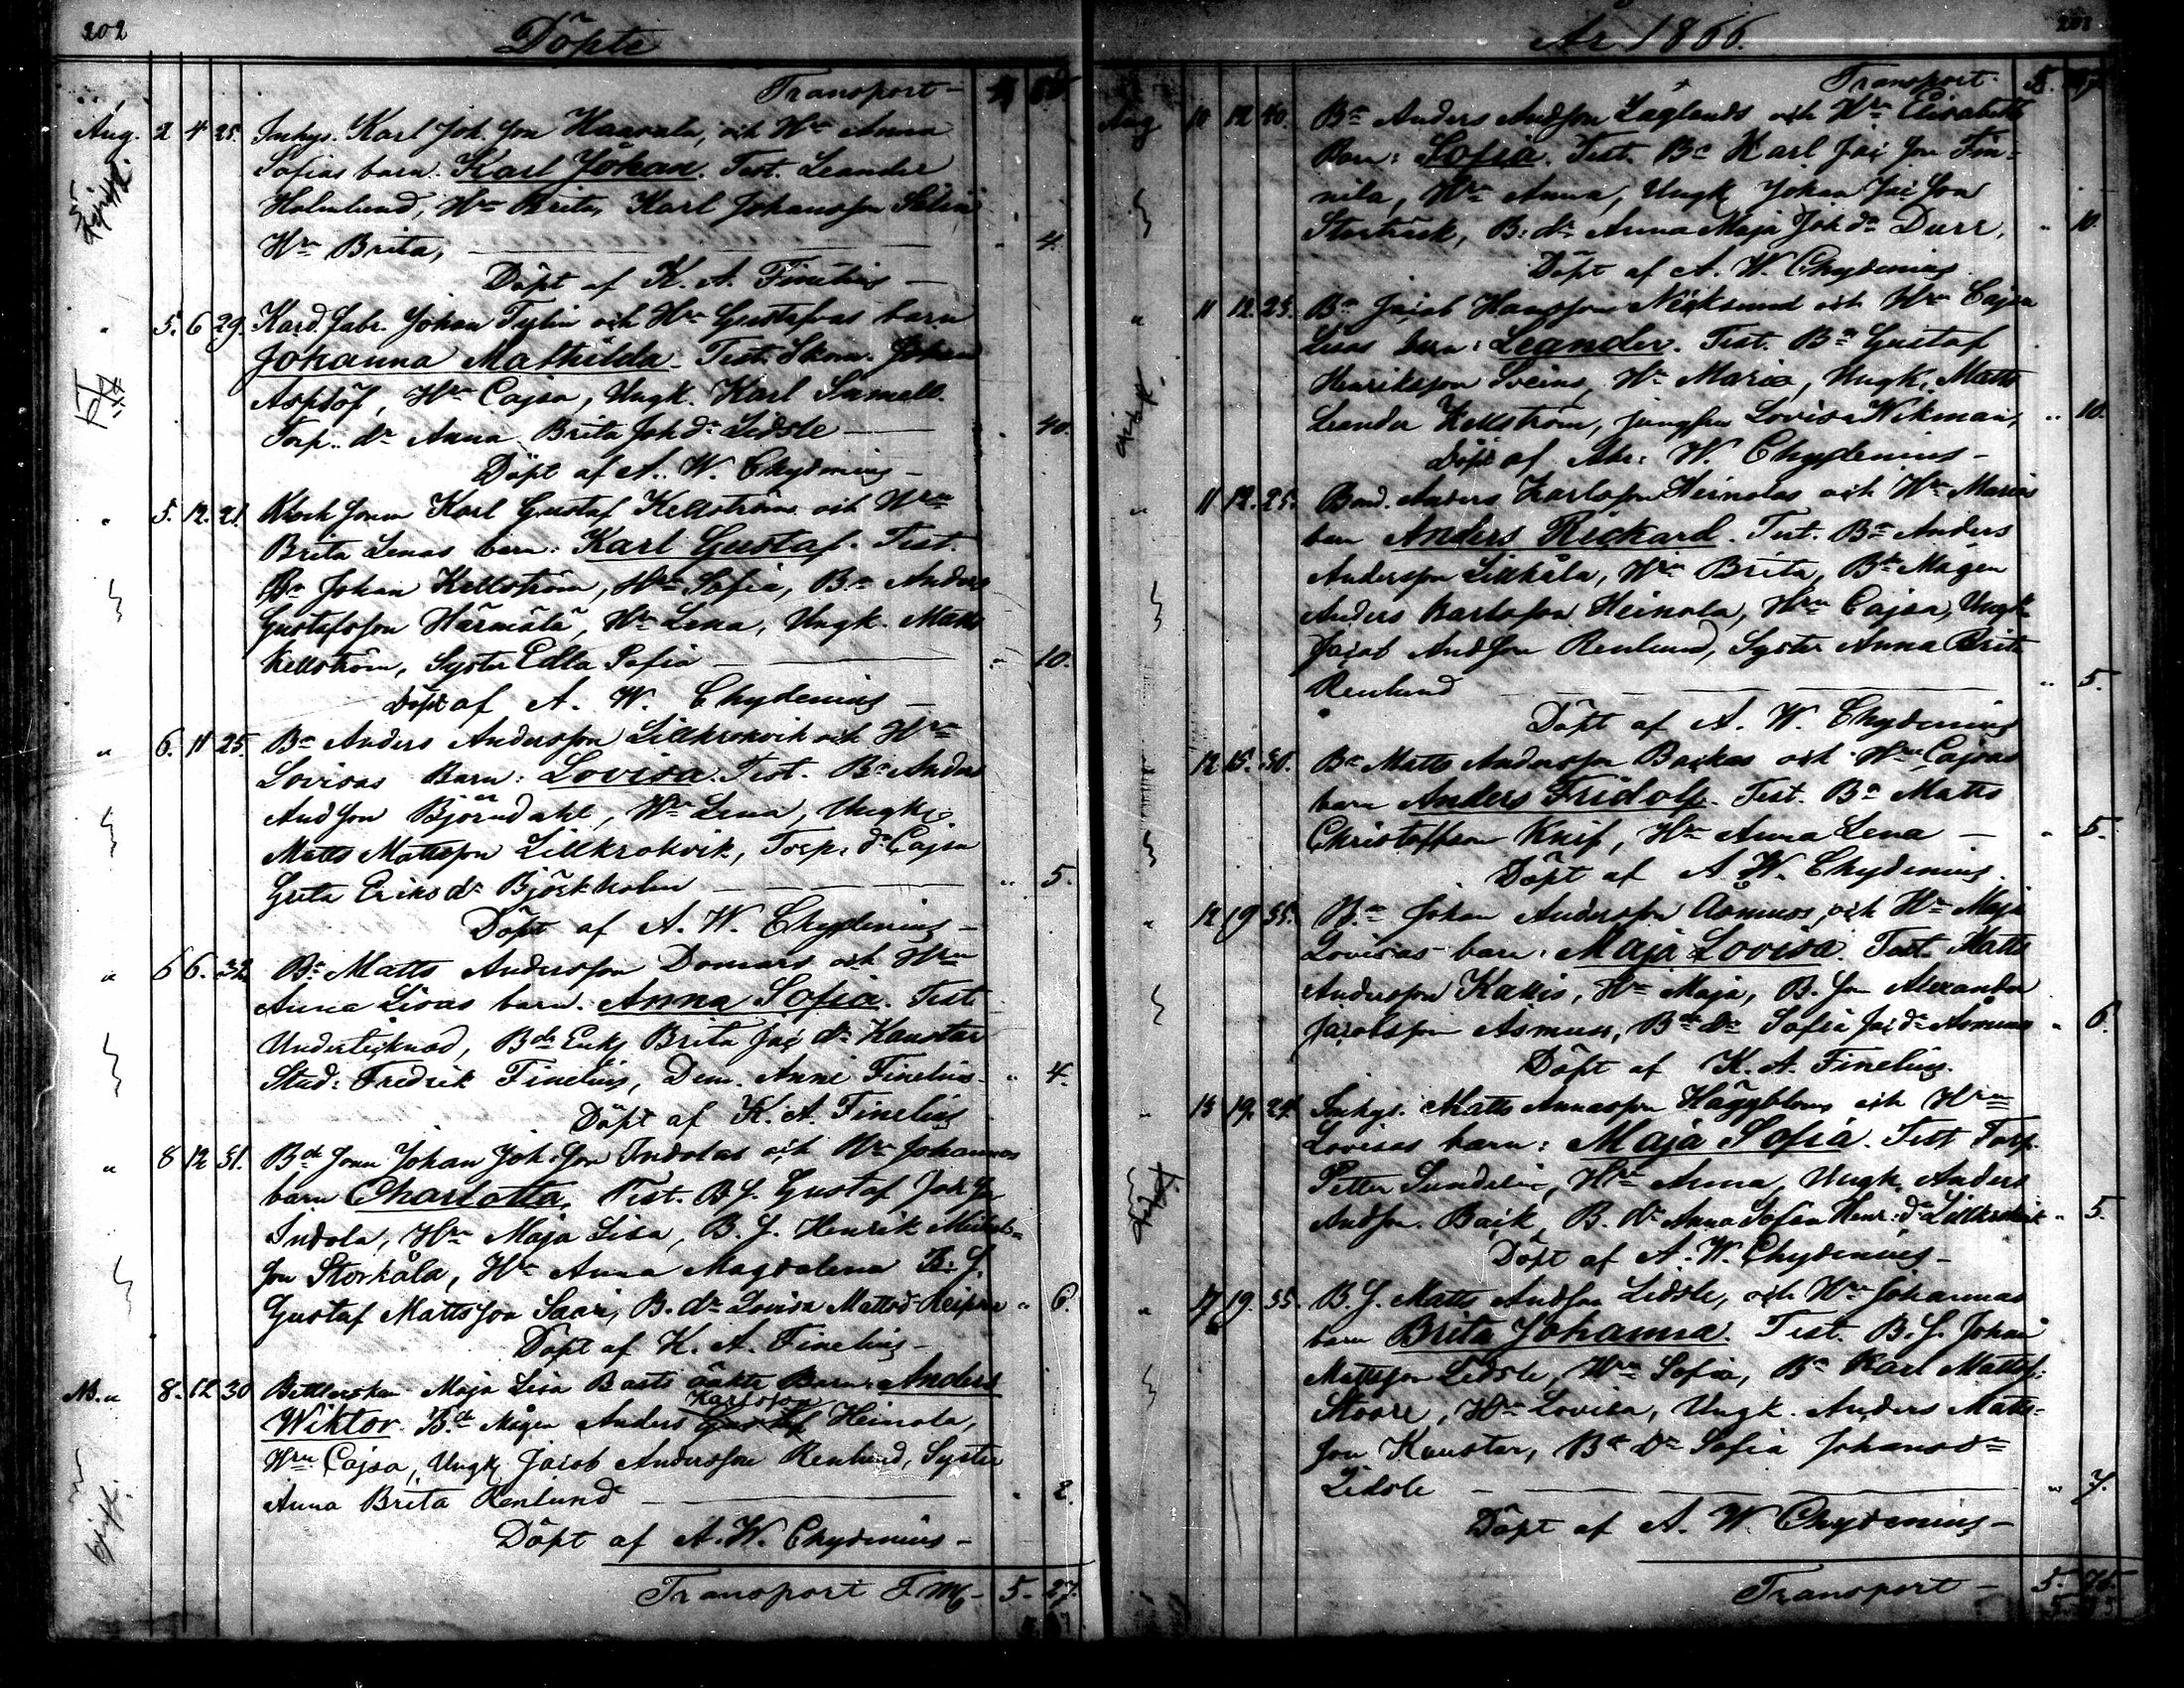 202
Döpte
Transport –
Aug. 2 4 25. Inhys. Karl Joh. son Haavala, och Hru Anna
Sofias barn. Karl Johan. Test. Leander
Holmlund, Hru Brita, Karl Johansson
Hru Brita, — " 4.
Döpt af K. A. Finelius –
" 5. 6 29. Kard. fabr. Johan och Hru Gustafvas barn
Johanna Mathilda. Test. Skom. Johan
Asplöf, Hru Cajsa, Ungk. Karl
Torp. dr Anna Brita Joh dr Lidsle — " 40.
Döpt af A. W. Chydenius –
" 5. 12. 21. Karl Gustaf Kellström och Hru
Brita Lenas barn: Karl Gustaf. Test.
Bn Johan Kellström, Hru Sofia, Bn Anders
Gustafsson Härmälä, Hru Lena, Ungk. Matts
Kellström, Syster Edla Sofia — " 10.
Döpt af A. W. Chydenius –
" 6. 11 25. Bn Anders Andersson Lillkrokvik och Hru
Lovisas Barn: Lovisa. Test. Bn Anders
Andson Björndahl, Hru Lena, Ungk.
Matts Mattsson Lillkrokvik, Torp. dr Cajsa
Greta Eriksdr Björkholm — " 5.
Döpt af A. W. Chydenius –
" 6 6. 32. Bn Matts Andersson Domars och Hru
Anna Lisas barn. Anna Sofia. Test.
Undertecknad, Bde Enk. Brita Jac dr Kaustar
Stud: Fredrik Finelius, Dem. Anni Finelius – " 4.
Döpt af K. A. Finelius
" 8 12 31. Bde Sonen Johan Joh. Son Indolas och Hru Johannas
barn Charlotta. Test. B. S. Gustaf Joh Son
Indola, Hru Maja Lisa, B. S. Henrik Mickels-
son Storkåla, Hru Anna Magdalena B. S.
Gustaf Mattsson Saari, B. dr Lovisa Mattsd. " 6.
Döpt af K. A. Finelius –
" 8. 12 30 Betlerskan Maja Lisa Basts oäkta Barn: Anders
Karlsson
Wiktor. Bde Mågen Anders Heinola,
Hru Cajsa, Ungk. Jacob Andersson Renlund, Syster
Anna Brita Renlund — " 2.
Döpt af A. W. Chydenius –
Transport F. Mk – 5. 27.
År 1866.
203
Transport
Aug 10 12 40. Bn Anders Andson Laglands och Hru Elisabeth
Barn: Sofia. Test. Bn Karl Jac Son Fin-
nila, Hru Anna, Ungk Johan Jac Son
Storträsk, B. dr Anna Maja Joh dr Durr, " 10.
Döpt af A. W. Chydenius.
" 11 12. 25. Bn Jacob Hansson Necksund och Hru Cajsa
Lisas barn: Leander. Test. Bn Gustaf
Henriksson Sveins, Hru Maria, Ungk. Matts
Leander Kellström, jungfru Lovisa Wikman, " 10.
Döpt af Abr. W. Chydenius –
" 11 12. 25. Bond. Anders Karlsson Heinolas och Hru Marias
barn Anders Rickard. Test. Bn Anders
Andersson Lillkåla, Hru Brita, Bde Mågen
Anders Karlsson Heinola, Hru Cajsa, Ungk.
Jacob Andson Renlund, Syster Anna Brita
Renlund — " 5.
Döpt af A. W. Chydenius
12 15. 30. Bn Matts Andersson Backas och Hru Cajsas
barn Anders Fridolf. Test. Bn Matts
Christoffsson Knif, Hru Anna Lena — " 5.
Döpt af A. W. Chydenius.
" 12 19 35. Bn Johan Andersson Åsmuss, och Hru Maja
Lovisas barn: Maja Lovisa. Test. Matts
Andersson Kallis, Hru Maja, B. Son Alexander
Jacobsson Åsmuss, Bde dr Sofia Jac dr Åsmuss " 6.
Döpt af K. A. Finelius.
" 13 19. 24. Inhys. Matts Annasson Häggblom och Hru
Lovisas barn: Maja Sofia. Test Torp.
Petter Sundelin, Hru Anna, Ungk. Anders
Andson. Back, B. dr Anna Sofia Henr. dr Lillkrokvik " 5.
Döpt af A. W. Chydenius –
" 17 19. 35. B. S. Matts Andson Lidsle, och Hru Johannas
barn Brita Johanna. Test. B. S. Johan
Mattsson Lidsle, Hru Sofia, Bn Karl Mattss:
Stoore, Hru Lovisa, Ungk. Anders Matts-
son Kaustar, Bde dr Sofia Johansdr
Lidsle — " 7.
Döpt af A. W. Chydenius –
Transport – 5. 75.